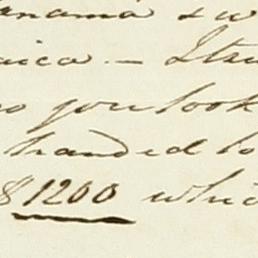 anama & w
aica. - I tru
o you look
handed to
$1200 whic